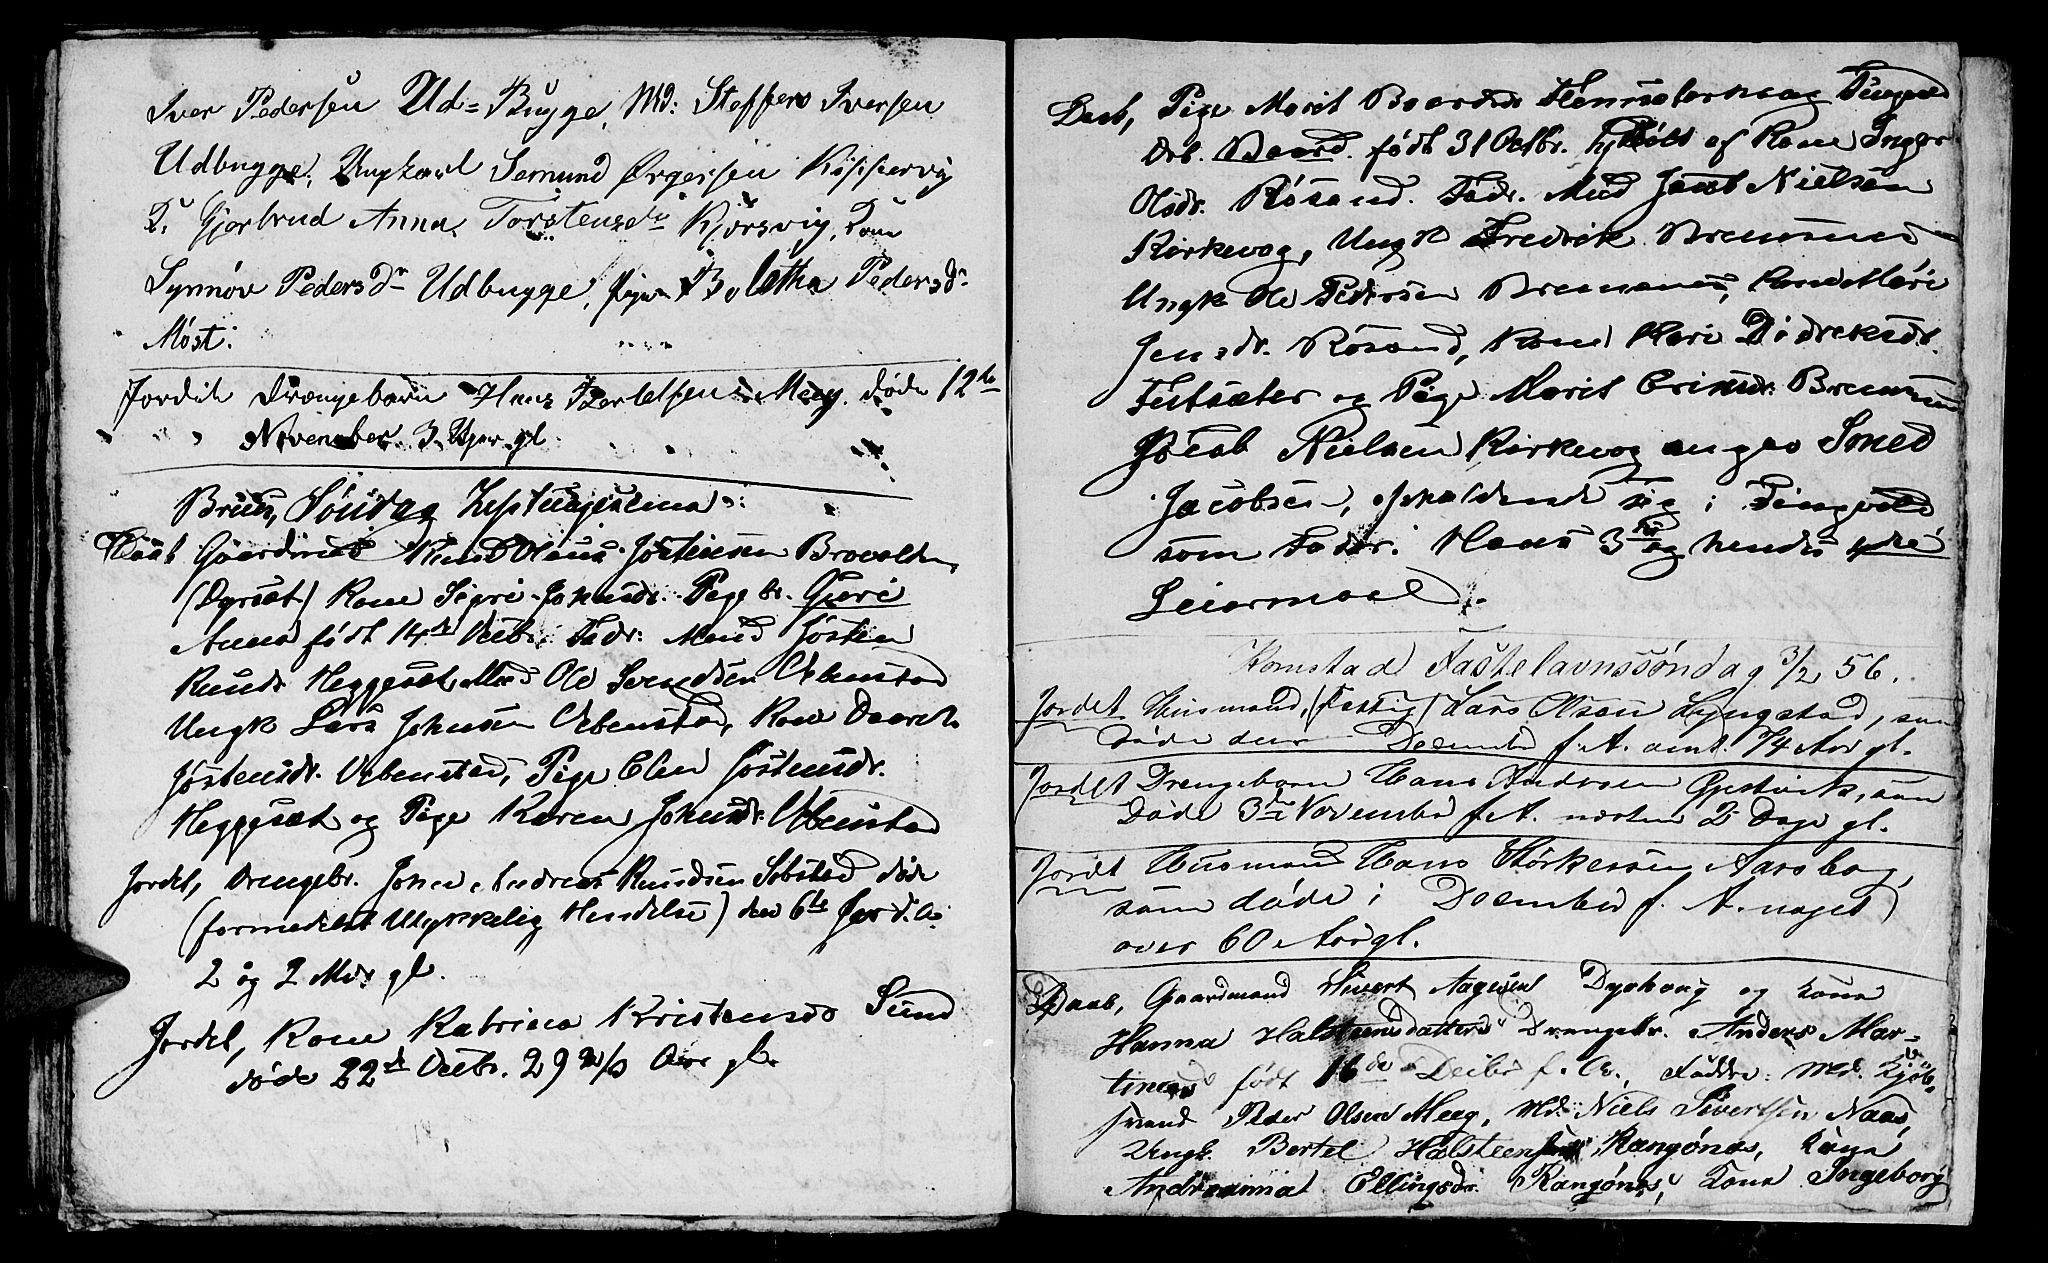 Iver Pedersen Ud=Bugge, Md: Steffen Iversen
Udbugge, Ungkarl Semund Ørgersen
Gjerbrud Anna Torstensdr Kjørsvig, Kone
Synnøv Pedersdr Udbugge, Pige Boletha Pedersdr
Møst:
Jordet Drengebarn Hans Meeg døde 12te
November 3 Uger gl
Bruus, Søndag Septuagesima:
Daab Gaardmd Knud Olaus Jøstensen Brovolden
(Dyrsæt) Kone Sigri Johnsdr. Pigebr. Guri
Anna født 14de Decbr. Fadr: Mand Jøsten
Knuds. Heggesæt, Md Ole Svendsen Ørbenstad
Ungk Lars Johnsen Ørbenstad, Kone
Jøstensdr. Ørbenstad, Pige Elen Jøstensdr.
Heggesæt og Pige Karen Johnsdr. Ørbenstad
Jordet, Drengebr. John Andreas Knudsen Sebstad døde
(formedelst Ulykkelig Hendelse) den 6te Jan d. A.
2 og 2 Mdr gl.
Jordet, Kone Katrina Kristensdr Sund
døde 22de Decbr. 29 Aar gl.
Daab, Pige Marit Baardsdr Tingvold
Drb. Baard. født 31 Octbr. hjdøbt af Kone Inger
Olsdr. Røsand. Fadr. Md Jacob Nielsen
Kirkevog, Ungk Fredrik Bremsnes
Ungk Ole Pedersen Bremsnes, Kone Mari
Jensdr. Røsand, Kone Kari Didreksdr.
Futsæter og Pige Marit Eriksdr. Bremsnes
Jacob Nielsen Kirkevog anges Smed
Jacobsen, opholdende sig i Tingvold
som Fader. Hans 3die og hendes 4de
Leiermaal.
Kornstad Fastelavnssøndag 3/2 56.
Jordet Husmand, (Fattig) Lars Olsen Lyngstad, som
døde den December f. A. omt. 74 Aar gl.
Jordet Drengebarn Hans Andersen som
døde 3die November f. A. næsten 2 Dage gl.
Jordet Husmand Hans Størkersen Aarsbog,
som døde i December f. A. noget
over 60 Aar gl.
Daab, Gaardmand Sivert Aagesen Dyrhaug og Kone
Hanna Halsteensdatters Drengebr. Anders Mar-
tinus født 16de Decbr f. A., Faddre: Md. Kjøb-
svend Peder Olsen Meeg, Md. Niels Sivertsen Naas,
Ungk. Bertel Halsteensen Rangønes, Kone
Andreanna Ellingsdr. Rangønes, Kone Ingeborg